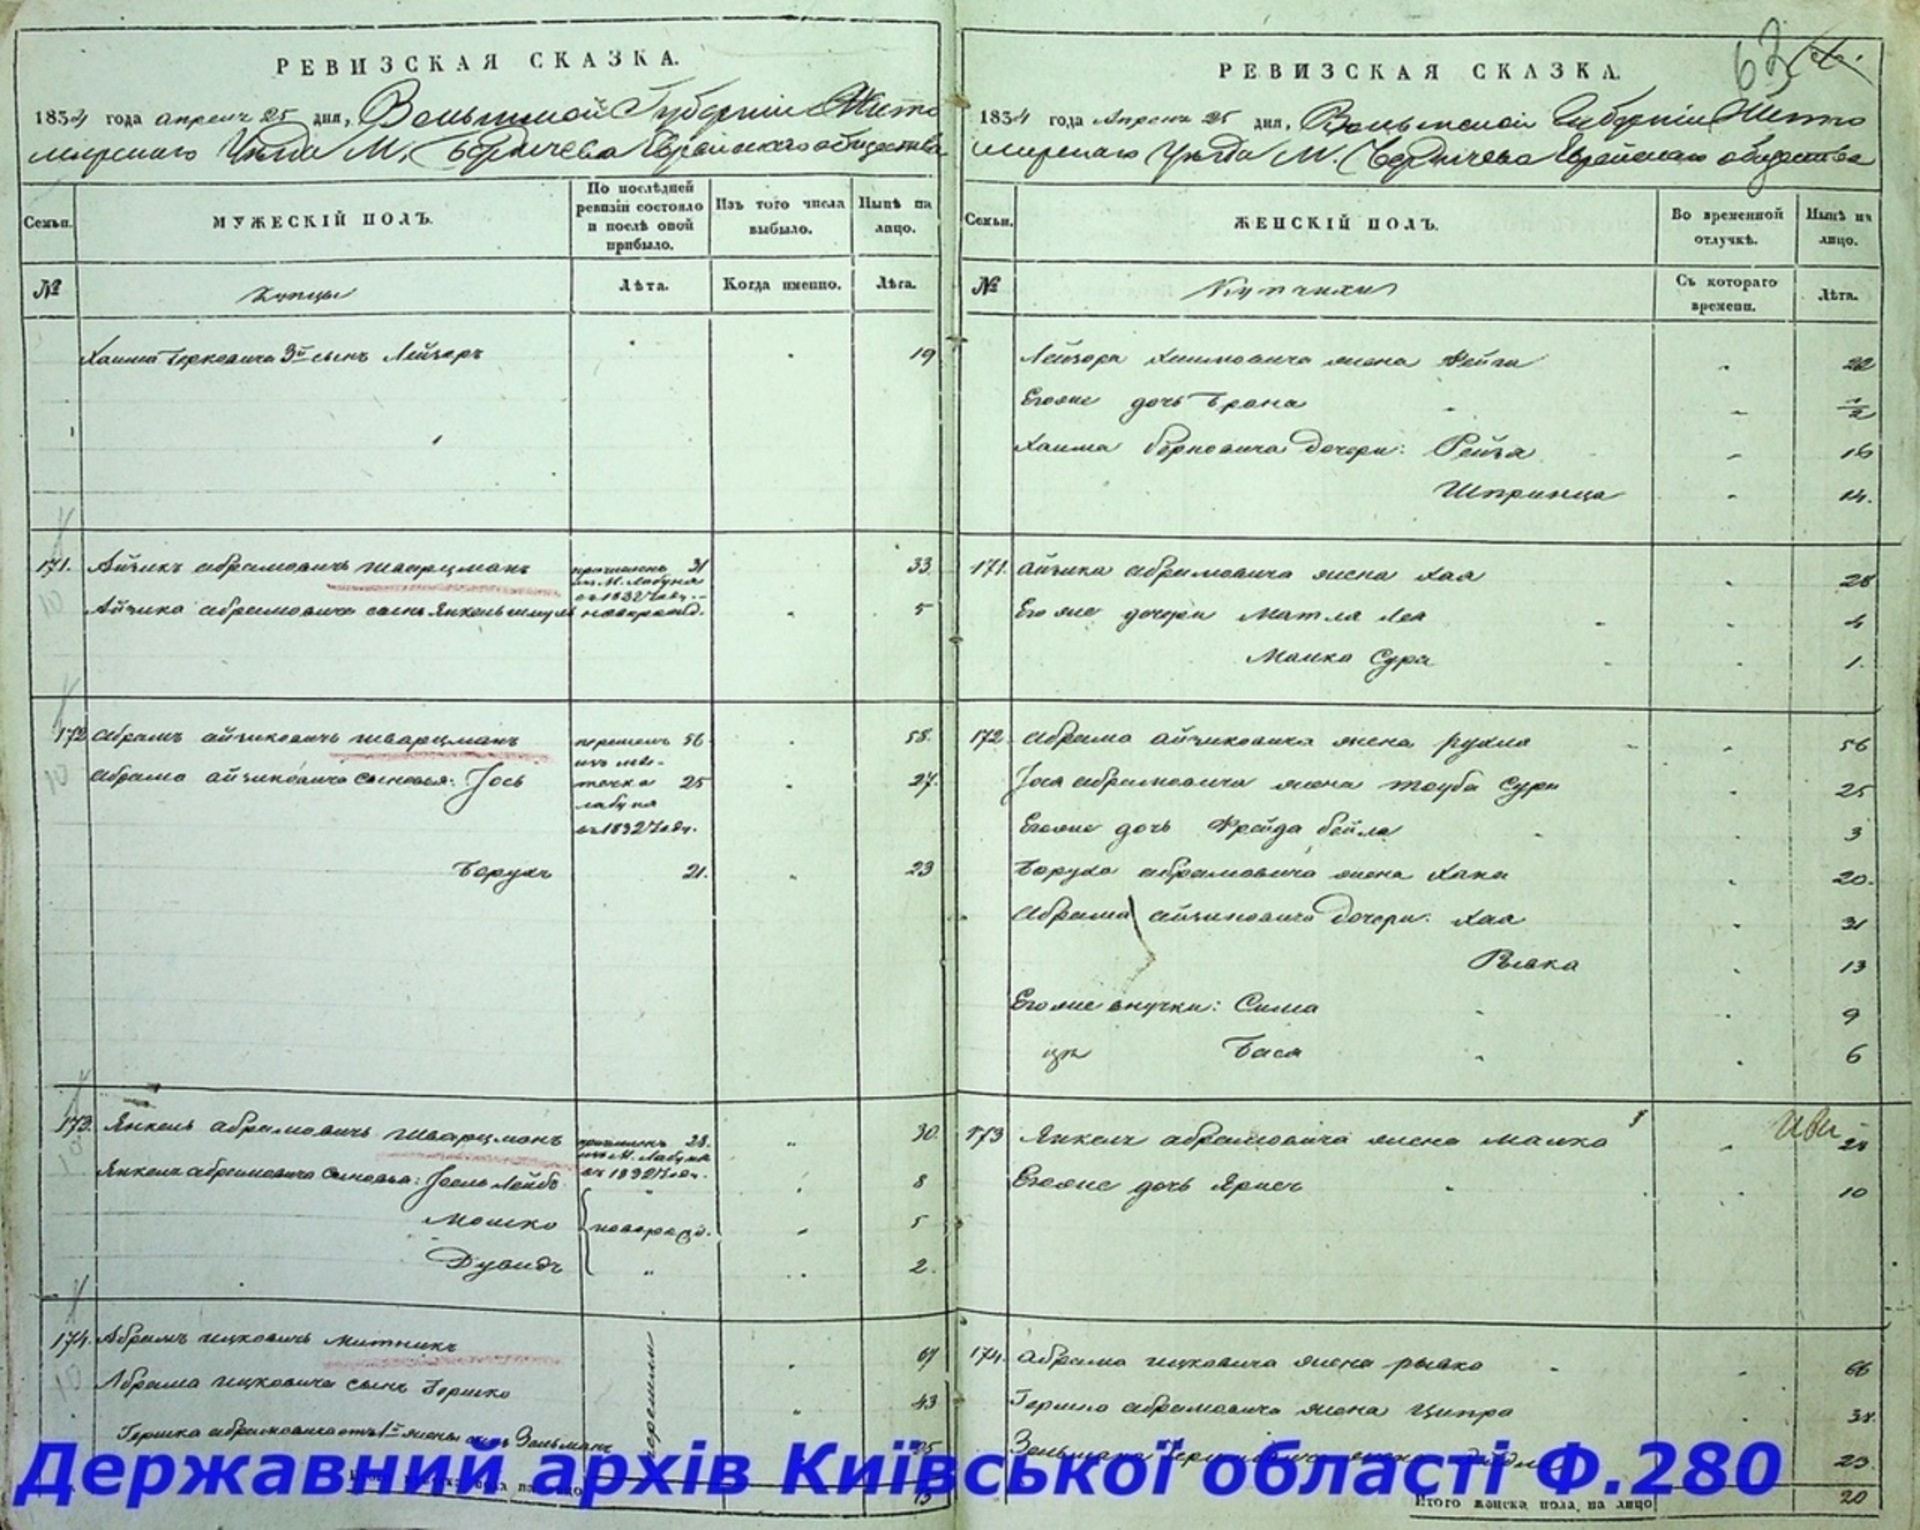 РЕВИЗСКАЯ СКАЗКА.
1834 года апреля 25 дня, Волынской Губернии Жито
мирскаго Уезда М. Бердичева Еврейскаго общества
Семьи.
МУЖЕСКІЙ ПОЛЪ.
По послѣдней ревизіи состояло и послѣ оной прибыло.
Изъ того числа выбыло.
Нынѣ на лицо.
№
Купцы
Лѣта.
Когда именно.
Лѣта.
Хаима Берковича 3й сынъ Лейзоръ 19
171. Айзикъ Абрамовичъ Шварцманъ причисленъ 31 33
изъ М. Лабуня
въ 1832 году.
Айзика Абрамовича сынъ Янкель Шмуль новорожд. 5
172 Абрамъ Айзиковичъ Шварцманъ перешелъ 56 58
изъ мѣ-
Абрама Айзиковича сыновья: Іось течка 25 27
лабуня
въ 1832 году.
Борухъ 21. 23
173. Янкель Абрамовичъ Шварцманъ причисленъ 28. 30
изъ М. Лабуня
въ 1832 году.
Янкеля Абрамовича сыновья: Іосль Лейбъ 8
Мошко новорожд. 5
Дувидъ 2.
174. Абрамъ Ицковичъ Митникъ 67
Абрама Ицковича сынъ Гершко 43
Гершка Абрамовича отъ 1й жены сынъ Зельманъ 25
РЕВИЗСКАЯ СКАЗКА.
63
1834 года Апреля 25 дня, Волынской Губернии Жито
мирскаго Уезда М. Бердичева Еврейскаго общества
Семьи.
ЖЕНСКІЙ ПОЛЪ.
Во временной отлучкѣ.
Нынѣ на лицо.
№
Купчихи
Съ котораго времени.
Лѣта.
Лейзора Хаимовича жена Фейга 22
Его же дочь Брана 1/2
Хаима Берковича дочери: Рейза 16
Шпринца 14.
171. Айзика Абрамовича жена Хая 28
Его же дочери Матля Лея 4
Малка Сура 1.
172. Абрама Айзиковича жена Рухля 56
Іося Абрамовича жена Тауба Сура 25
Его же дочь Фрейда Бейла 3
Боруха Абрамовича жена Хана 20.
Абрама Айзиковича дочери: Хая 31
Рывка 13
Его же внучки: Сима 9
Бася 6
173 Янкеля Абрамовича жена Малка 28
Его же дочь 10
174. Абрама Ицковича жена Рывка 66
Гершко Абрамовича жена Ципра 38.
Зельмана Гершковича жена 23.
Итого женска пола, на лицо 20
Державний архів Київської області Ф.280